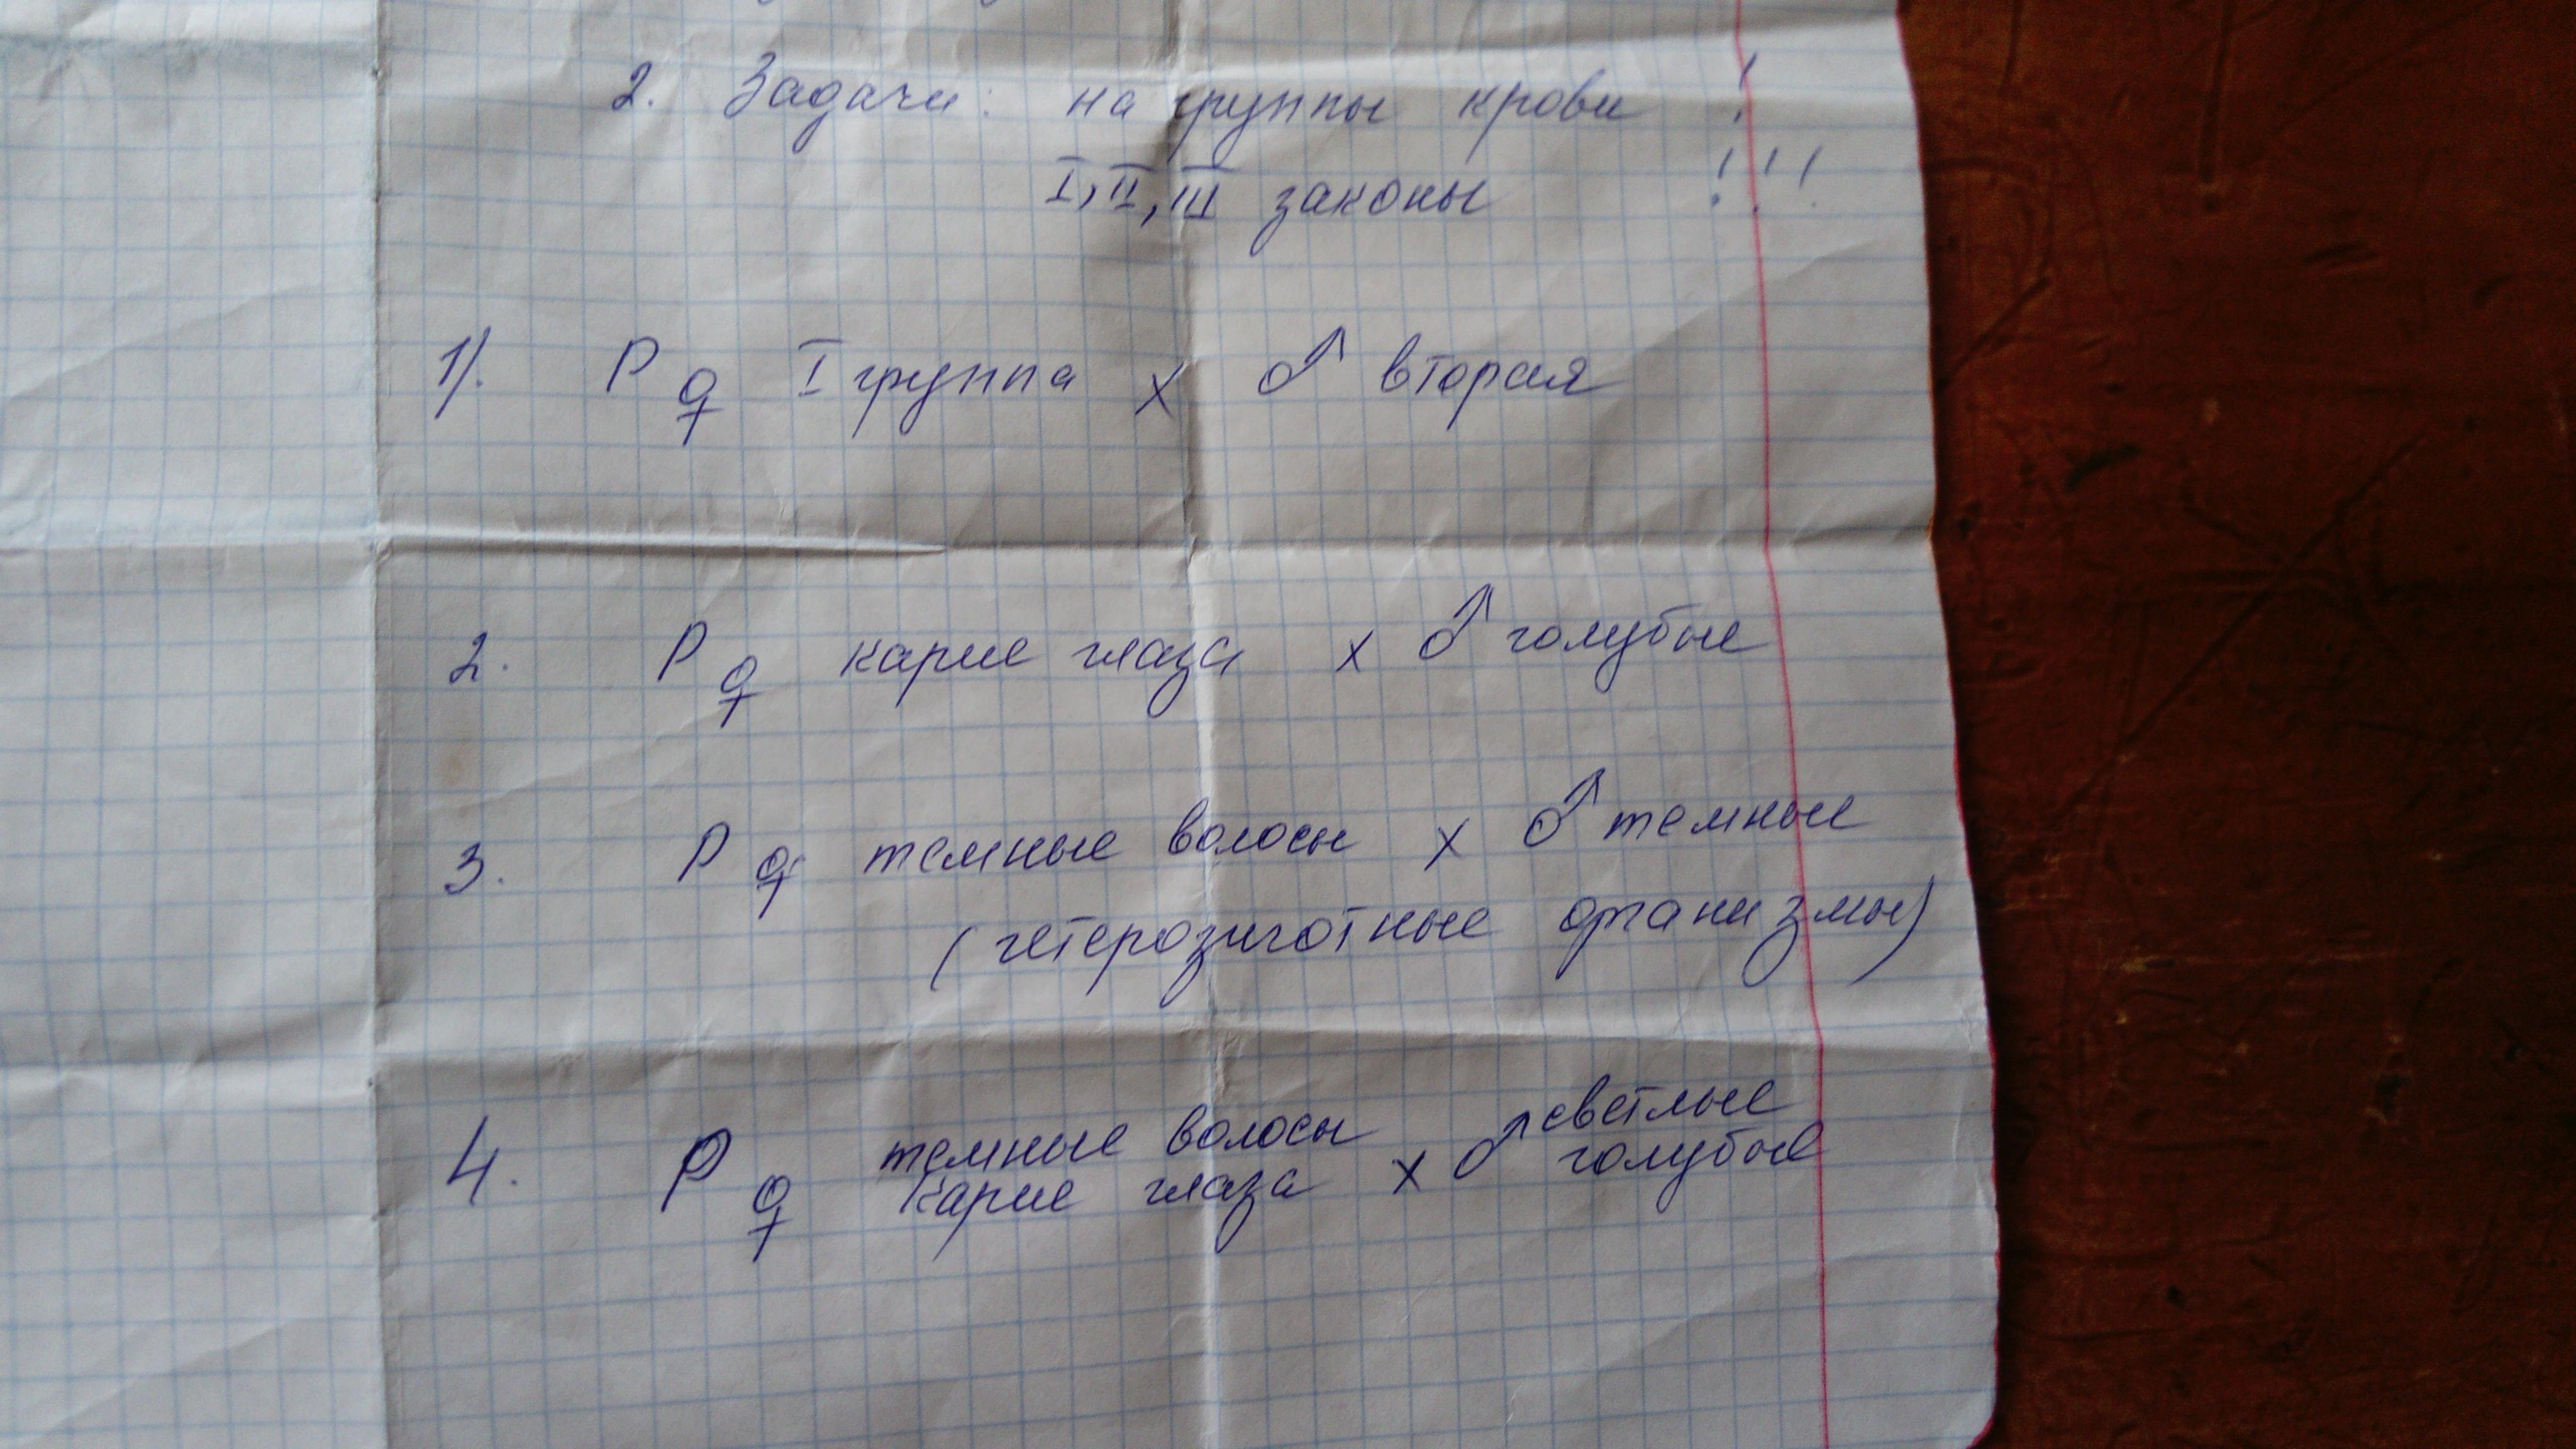 2. Задачи: на группы крови !
I, II, III законы !!!
1). P ♀ I группа x ♂ вторая
2. P ♀ карие глаза x ♂ голубые
3. P ♀ темные волосы x ♂ темные
(гетерозиготные организмы)
4. P ♀ темные волосы x ♂ светлые
карие глаза голубые